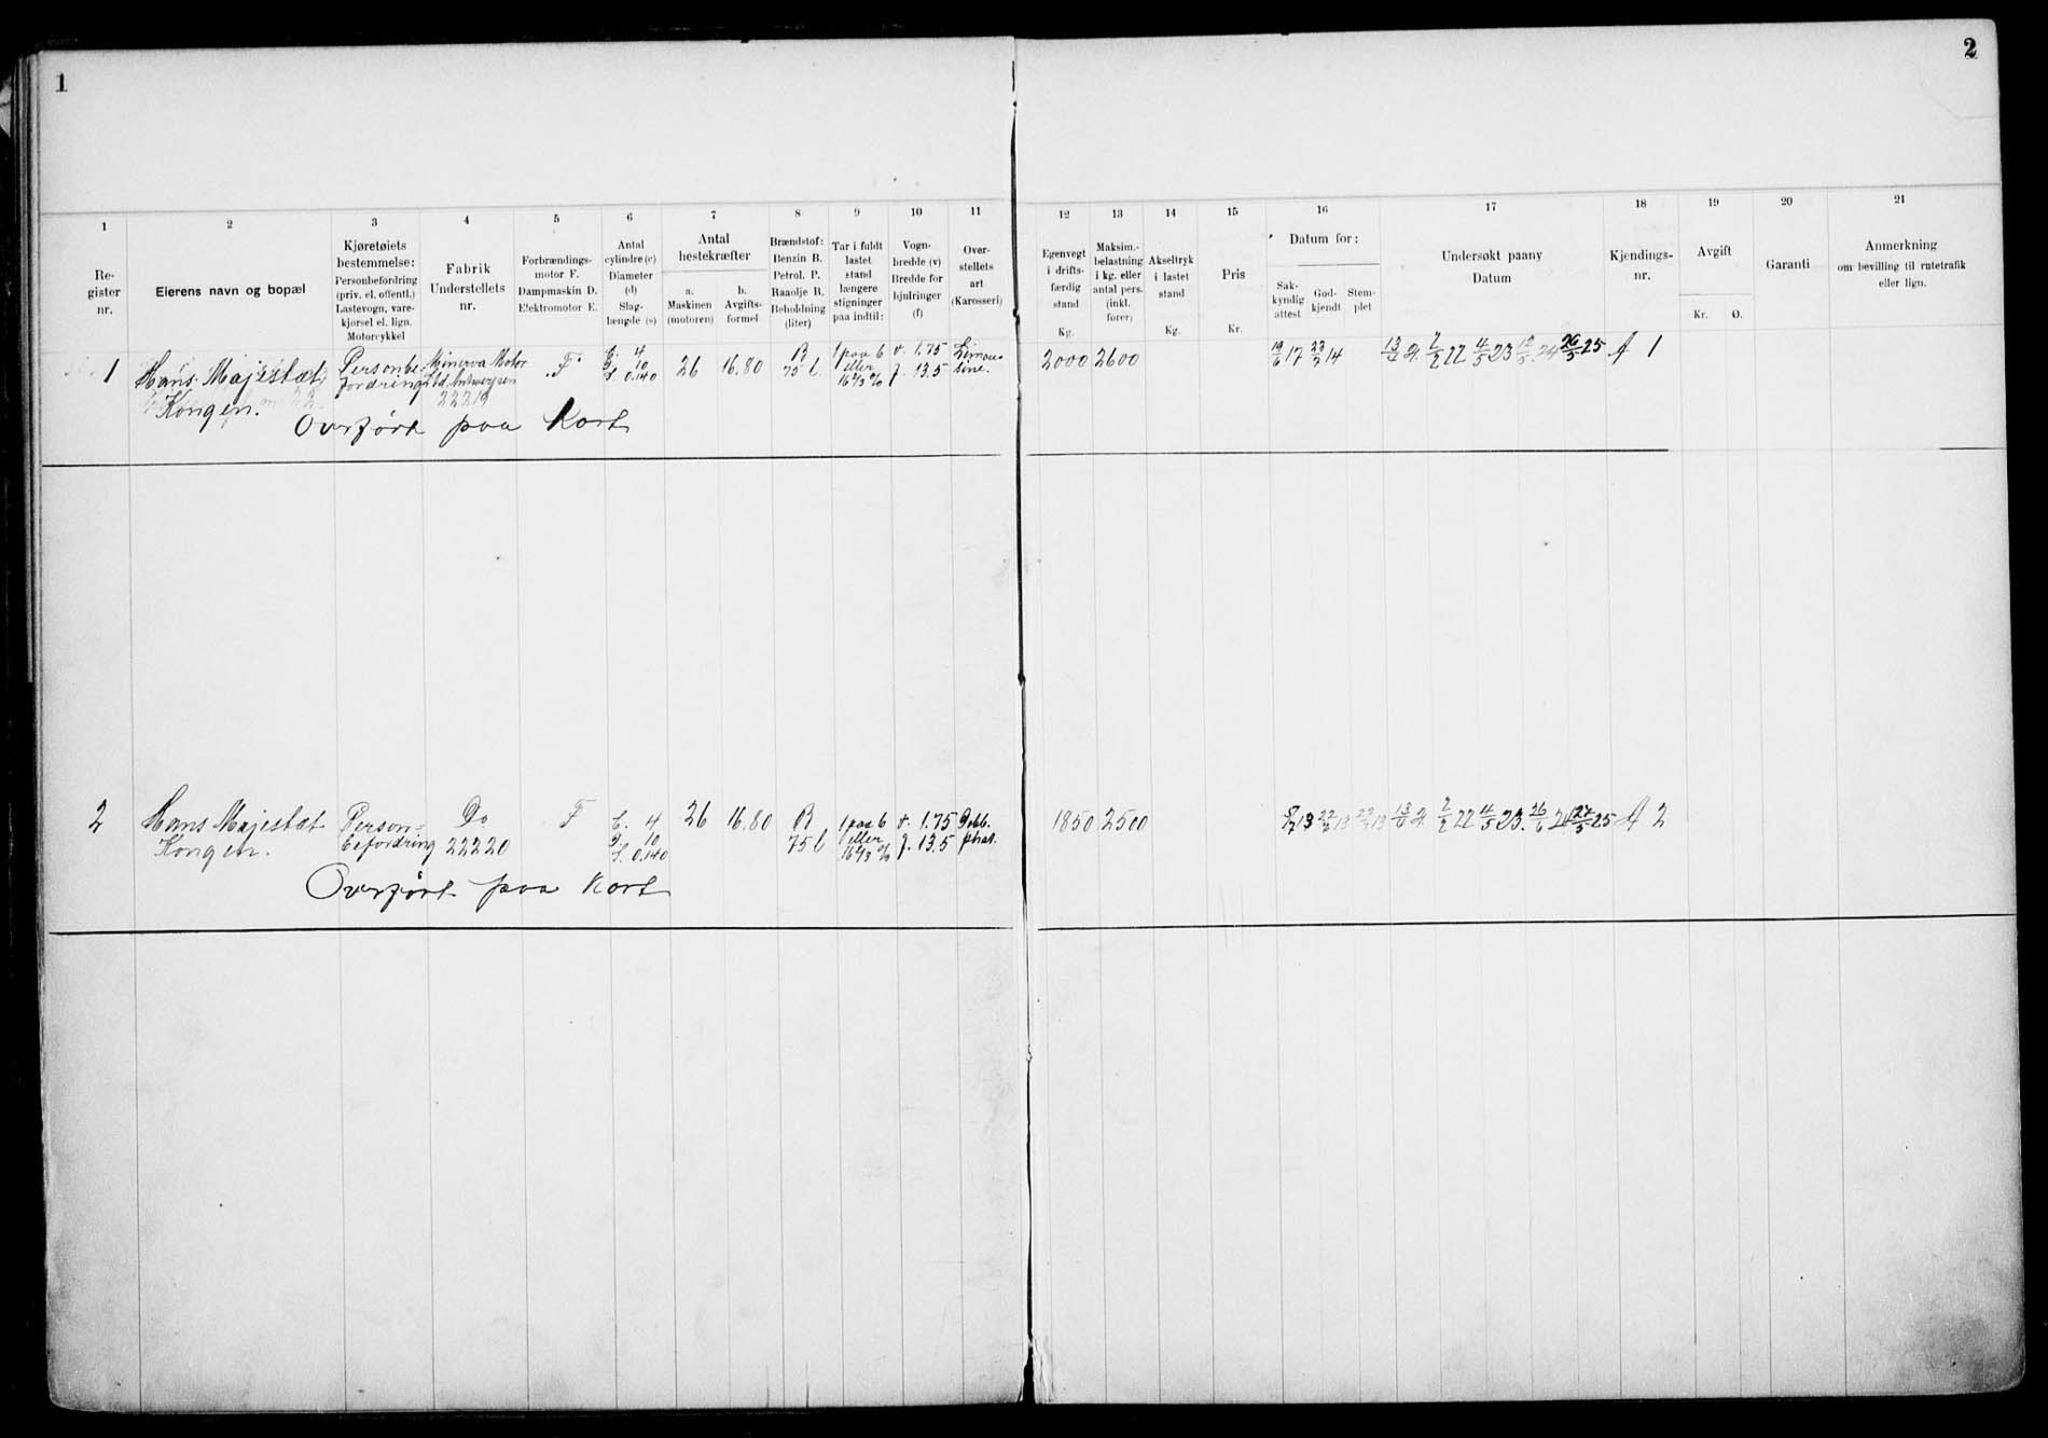 1
2
1 2 3 4 5 6 7 8 9 10 11 12 13 14 15 16 17 18 19 20 21
Re-
gister
nr.
Eierens navn og bopæl
Kjøretøiets
bestemmelse:
Personbefordring
(priv. el. offentl.)
Lastevogn, vare-
kjørsel el. lign.
Motorcykkel
Fabrik
Understellets
nr.
Forbrændings-
motor F.
Dampmaskin D.
Elektromotor E.
Antal
cylindre (c)
Diameter
(d)
Slag-
længde (s)
Antal
hestekræfter
a.
Maskinen
(motoren)
b.
Avgifts-
formel
Brændstof:
Benzin B.
Petrol. P.
Raaolje R.
Beholdning
(liter)
Tar i fuldt
lastet
stand
længere
stigninger
paa indtil:
Vogn-
bredde (v)
Bredde for
hjulringer
(f)
Over-
stellets
art
(Karosseri)
Egenvegt
i drifts-
færdig
stand
Kg.
Maksim.-
belastning
i kg. eller
antal pers.
(inkl.
fører)
Akseltryk
i lastet
stand
Kg.
Pris
Kr.
Datum for:
Sak-
kyndig
attest
God-
kjendt
Stem-
plet
Undersøkt paany
Datum
Kjendings-
nr.
Avgift
Kr. Ø.
Garanti
Anmerkning
om bevilling til rutetrafik
eller lign.
1
Hans Majestæt
Kongen.
Personbe-
fordring
Minerva Motor
Antwerpen
22219
F
C. 4
D. 10
S. 0.140
26 16.80
B
75 l.
1 paa 6
eller
16 2/3 %
v. 1.75
f. 13.5
Limou-
sine.
2000 2600
19/6 17 23/7 14
2/2 22 4/5 23 12/5 24 26/5 25 A 1
Overført paa Kort
2
Hans Majestæt
Kongen.
Person-
befordring
Do
22220
F
C. 4
D. 10
S. 0.140
26 16.80
B
75 l
1 paa 6
eller
16 2/3 %
v. 1.75
f. 13.5
Dobb.
phat.
1850 2500
2/2 22 4/5 23. 26/6 24 27/5 25 A 2
Overført paa Kort